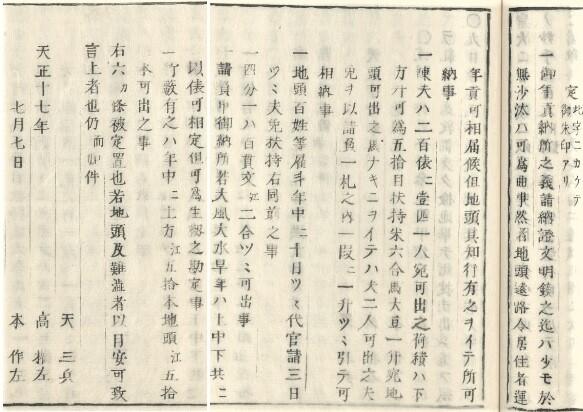 定 此字ニカケテ
御朱印アリ
一御年貢納所之義請納證文明鏡之迄ハ少モ於
無沙汰ハ可為曲事然者地頭遠路令居住者運
年貢可相届候但地頭其知行有之ヲイテ所可
納事
一陳夫ハ二百俵ニ壹疋一人宛可出之荷積ハ下
方升可為五拾目扶持米六合馬大豆一升宛地
頭可出之馬ナキニヲイテハ夫二人可出之夫
免ヲ以請負一札之内一段ニ一升ツヽ引テ可
相納事
一地頭百姓等雇斗年中ニ十日ツヽ代官請三日
ツヽ夫免扶持右同前之事
一四分一ハ百貫文江二合ツヽ可出事
一請負申御納所若大風大水旱年ハ上中下共ニ
以俵可相定但可為生籾之勘定事
一竹藪有之ハ年中ニ上方江五拾本地頭江五拾
本可出之事
右六カ條被定置也若地頭及難澁者以目安可致
言上者也仍而如件
天正十七年
七月七日
天三兵
高權左
本作左